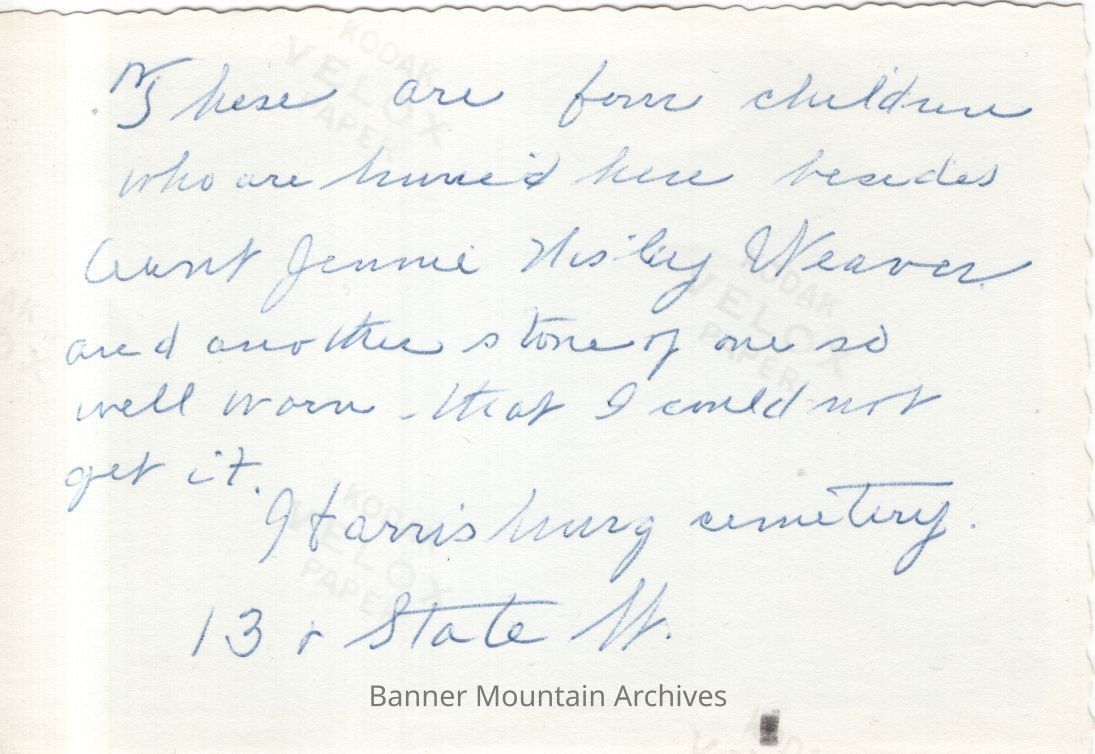 These are four children
who are buried here besides
Aunt Jennie Nisley Weaver
and another stone of one so
well worn that I could not
get it.
Harrisburg cemetery.
13 & State St.
Banner Mountain Archives
KODAK
VELOX
PAPER
KODAK
VELOX
PAPER
KODAK
VELOX
PAPER